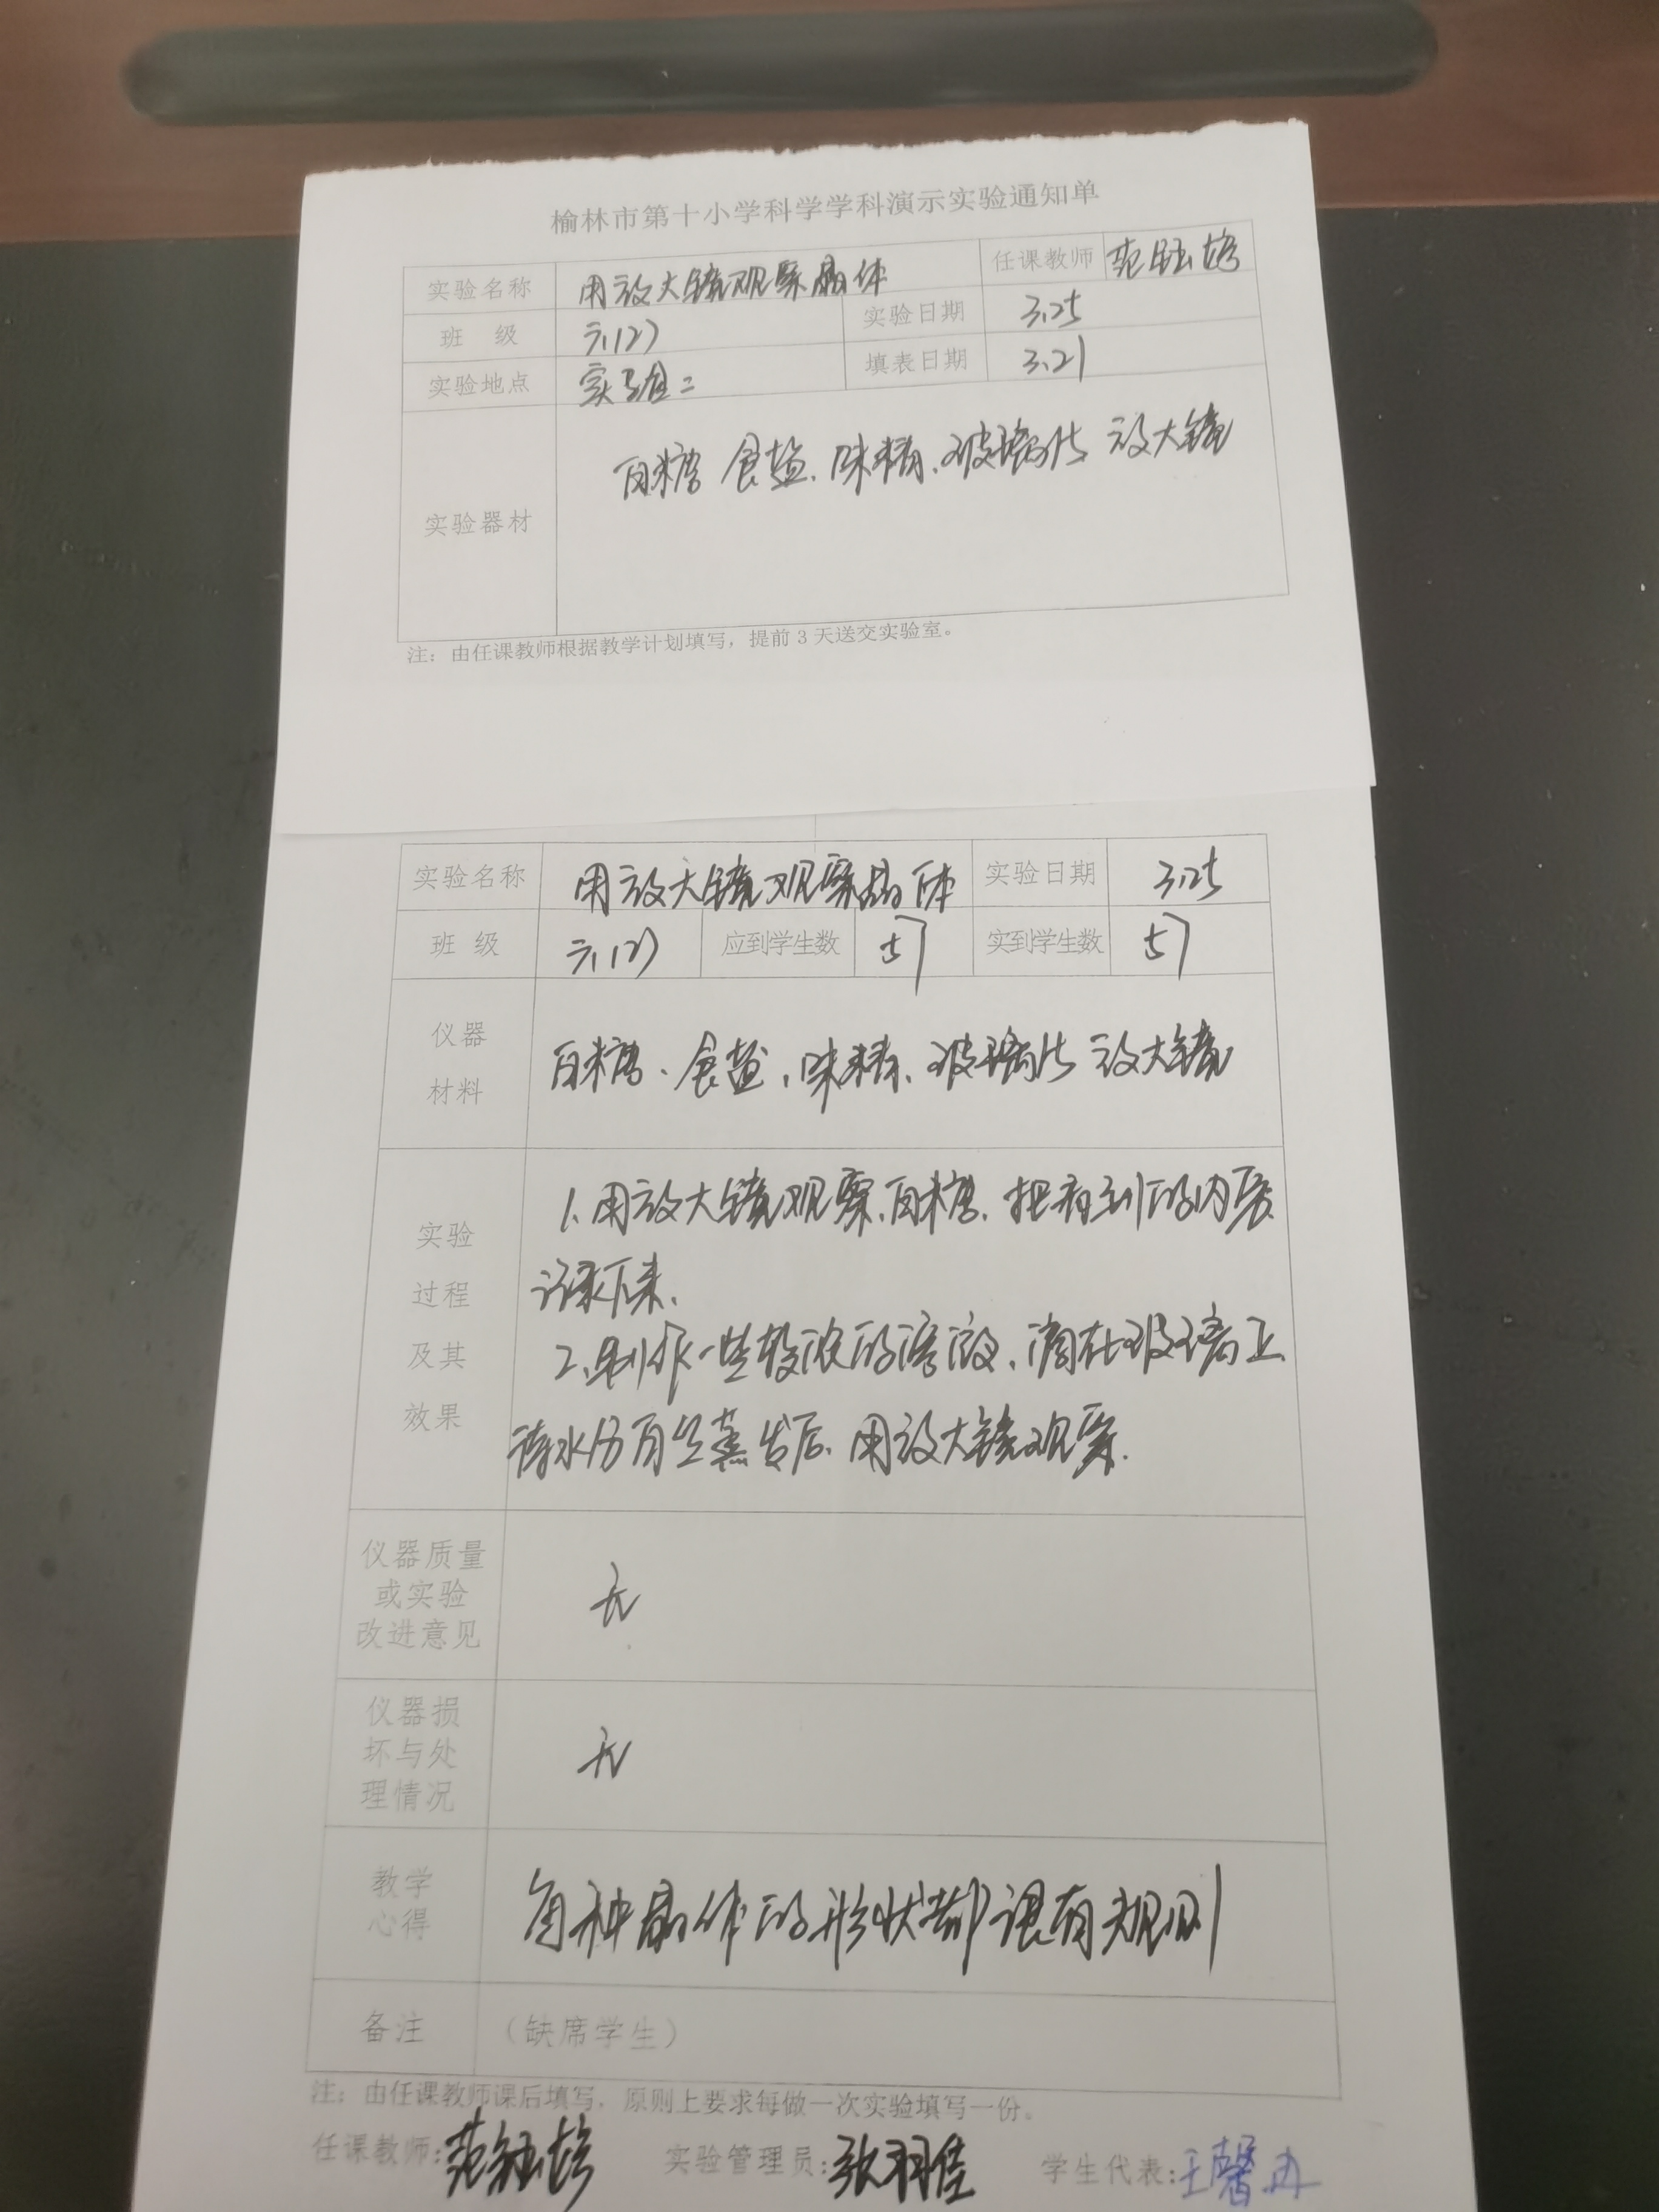 榆林市第十小学科学学科演示实验通知单
实验名称 用放大镜观察晶体 任课教师 范钰婷
班 级 六(2) 实验日期 3.25
实验地点 实验室二 填表日期 3.21
实验器材 白糖 食盐、味精、玻璃片 放大镜
注：由任课教师根据教学计划填写，提前 3 天送交实验室。
实验名称 用放大镜观察晶体 实验日期 3.25
班 级 六(2) 应到学生数 57 实到学生数 57
仪器
材料
白糖、食盐、味精、玻璃片 放大镜
实验
过程
及其
效果
1、用放大镜观察白糖、把看到的内容
记录下来、
2、制作一些较浓的溶液、滴在玻璃上
待水份完全蒸发后、用放大镜观察.
仪器质量
或实验
改进意见
无
仪器损
坏与处
理情况
无
教学
心得
每种晶体的形状都很有规则
备注 （缺席学生）
注：由任课教师课后填写，原则上要求每做一次实验填写一份。
任课教师: 范钰婷 实验管理员: 张羽佳 学生代表: 王馨